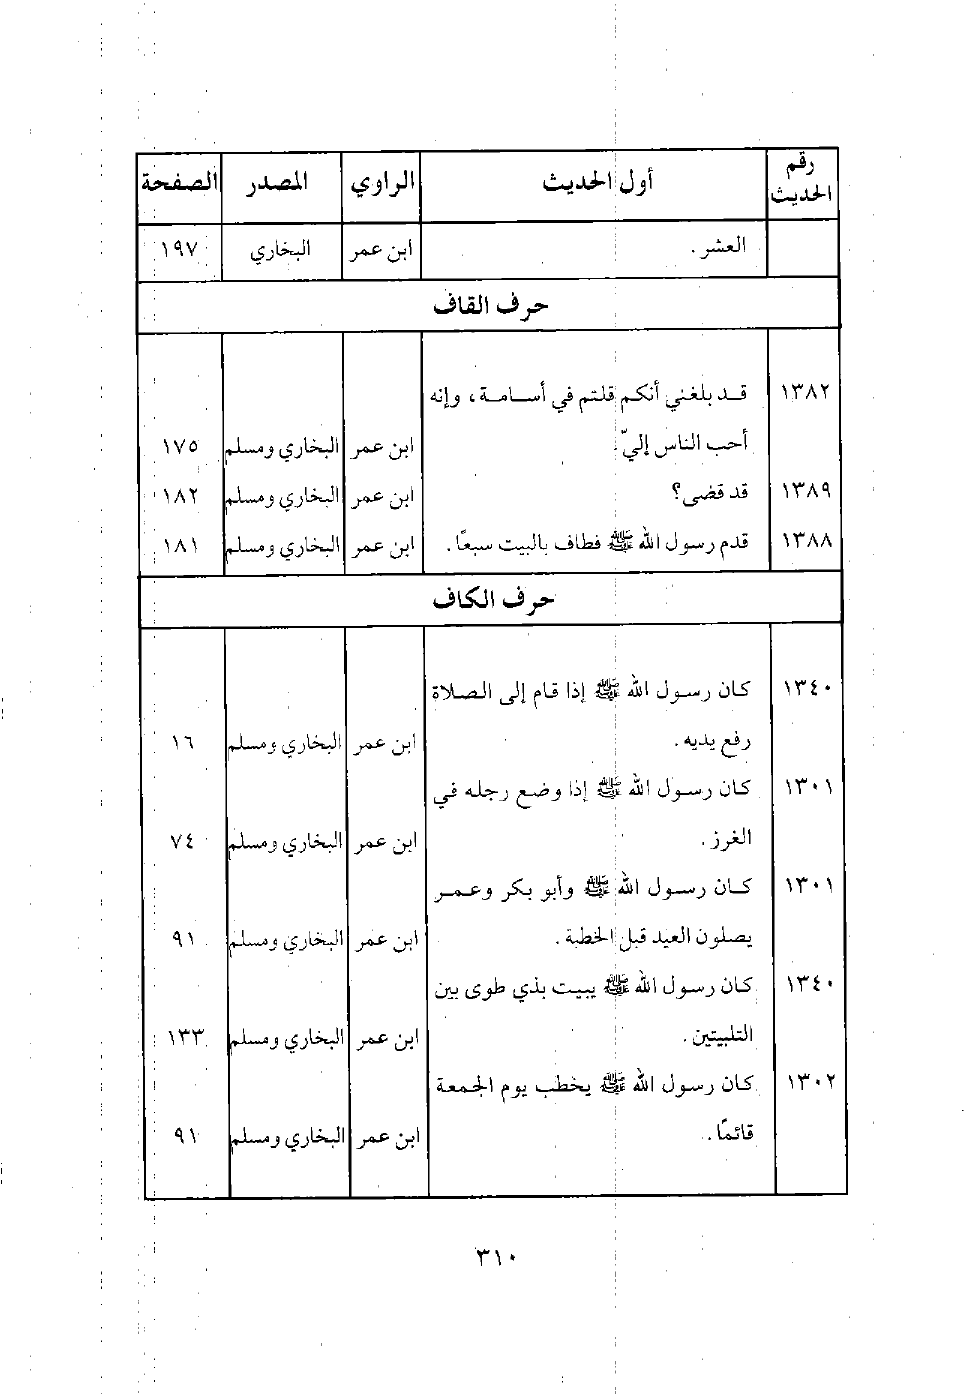 رقم الحديث | أول الحديث | الراوي | المصدر | الصفحة
العشر . | ابن عمر | البخاري | ١٩٧
حرف القاف
١٣٨٢ | قد بلغني أنكم قلتم في أسامة ، وإنه
أحب الناس إليّ . | ابن عمر | البخاري ومسلم | ١٧٥
١٣٨٩ | قد قضى؟ | ابن عمر | البخاري ومسلم | ١٨٢
١٣٨٨ | قدم رسول الله ﷺ فطاف بالبيت سبعًا . | ابن عمر | البخاري ومسلم | ١٨١
حرف الكاف
١٣٤٠ | كان رسول الله ﷺ إذا قام إلى الصلاة
رفع يديه . | ابن عمر | البخاري ومسلم | ١٦
١٣٠١ | كان رسول الله ﷺ إذا وضع رجله في
الغرز . | ابن عمر | البخاري ومسلم | ٧٤
١٣٠١ | كان رسول الله ﷺ وأبو بكر وعمر
يصلون العيد قبل الخطبة . | ابن عمر | البخاري ومسلم | ٩١
١٣٤٠ | كان رسول الله ﷺ يبيت بذي طوى بين
التلبيتين . | ابن عمر | البخاري ومسلم | ١٣٣
١٣٠٢ | كان رسول الله ﷺ يخطب يوم الجمعة
قائمًا . | ابن عمر | البخاري ومسلم | ٩١
٣١٠